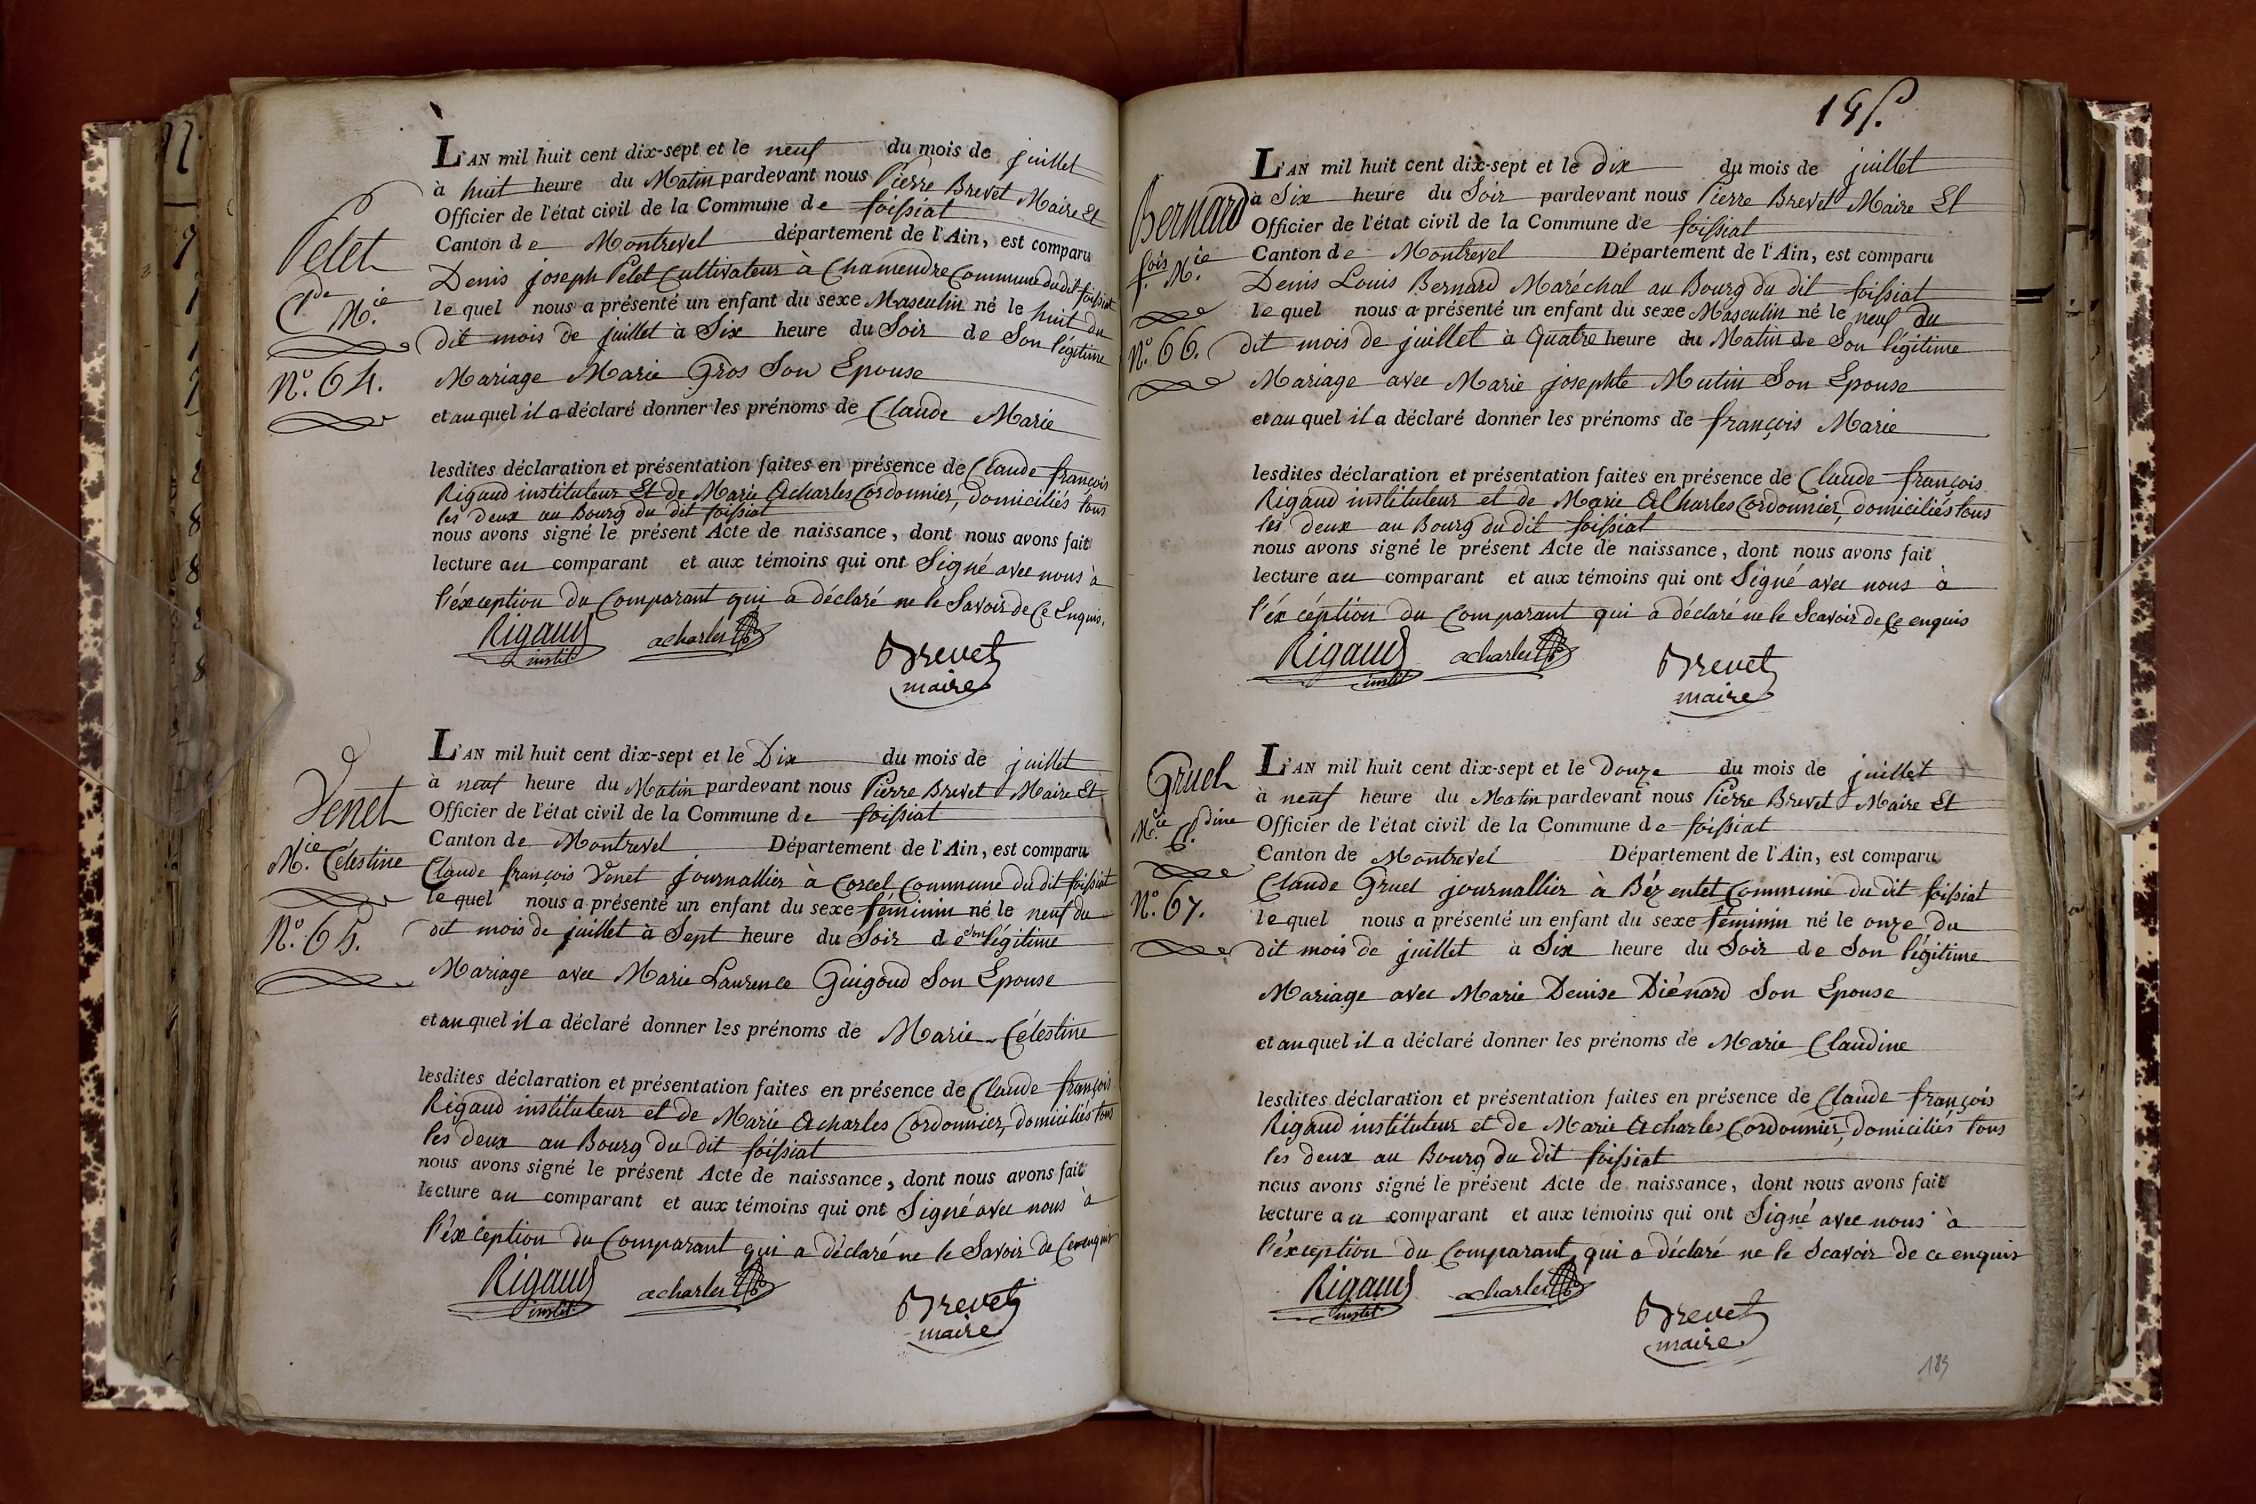 L'AN mil huit cent dix-sept et le neuf du mois de juillet
à huit heure du Matin pardevant nous Pierre Brevet Maire Et
Officier de l'état civil de la Commune de foissiat
Canton de Montrevel département de l'Ain, est comparu
Denis joseph Pelet Cultivateur à Chamendre Commune du dit foissiat
lequel nous a présenté un enfant du sexe Masculin né le huit du
dit mois de juillet à Six heure du Soir de Son légitime
Mariage Marie Gros Son Epouse
et auquel il a déclaré donner les prénoms de Claude Marie
lesdites déclaration et présentation faites en présence de Claude françois
Rigaud instituteur Et de Marie Acharles Cordonnier, domiciliés tous
les deux au Bourg du dit foissiat
nous avons signé le présent Acte de naissance, dont nous avons fait
lecture au comparant et aux témoins qui ont Signé avec nous à
l'éxception du Comparant qui a déclaré ne le Savoir de Ce Enquis.
Rigaud acharles Brevet
instit maire
Pelet
Cl.de M.ie
N.o 64.
L'AN mil huit cent dix-sept et le Dix du mois de juillet
à neuf heure du Matin pardevant nous Pierre Brevet Maire Et
Officier de l'état civil de la Commune de foissiat
Canton de Montrevel Département de l'Ain, est comparu
Claude françois Venet journallier à Corcel Commune du dit foissiat
lequel nous a présenté un enfant du sexe féminin né le neuf du
dit mois de juillet à Sept heure du Soir de Son légitime
Mariage avec Marie Laurence Guigoud Son Epouse
et auquel il a déclaré donner les prénoms de Marie Célestine
lesdites déclaration et présentation faites en présence de Claude françois
Rigaud instituteur et de Marie Acharles Cordonnier, domiciliés tous
les deux au Bourg du dit foissiat
nous avons signé le présent Acte de naissance, dont nous avons fait
lecture au comparant et aux témoins qui ont Signé avec nous à
l'éxception du Comparant qui a déclaré ne le Savoir de Ce enquis
Rigaud acharles Brevet
instit maire
Venet
M.ie Célestine
N.o 65.
L'AN mil huit cent dix-sept et le dix du mois de juillet
à Six heure du Soir pardevant nous Pierre Brevet Maire Et
Officier de l'état civil de la Commune de foissiat
Canton de Montrevel Département de l'Ain, est comparu
Denis Louis Bernard Maréchal au Bourg du dit foissiat
lequel nous a présenté un enfant du sexe Masculin né le neuf du
dit mois de juillet à Quatre heure du Matin de Son légitime
Mariage avec Marie josephte Mutin Son Epouse
et auquel il a déclaré donner les prénoms de françois Marie
lesdites déclaration et présentation faites en présence de Claude françois
Rigaud instituteur et de Marie ACharles Cordonnier, domiciliés tous
les deux au Bourg du dit foissiat
nous avons signé le présent Acte de naissance, dont nous avons fait
lecture au comparant et aux témoins qui ont Signé avec nous à
l'éxcéption du Comparant qui a déclaré ne le Scavoir de Ce enquis
Rigaud acharles Brevet
instit maire
Bernard
f.ois M.ie
N.o 66.
L'AN mil huit cent dix-sept et le douze du mois de juillet
à neuf heure du Matin pardevant nous Pierre Brevet Maire Et
Officier de l'état civil de la Commune de foissiat
Canton de Montrevel Département de l'Ain, est comparu
Claude Gruel journallier à Béz entet Commune du dit foissiat
lequel nous a présenté un enfant du sexe féminin né le onze du
dit mois de juillet à Six heure du Soir de Son légitime
Mariage avec Marie Denise Diénard Son Epouse
et auquel il a déclaré donner les prénoms de Marie Claudine
lesdites déclaration et présentation faites en présence de Claude françois
Rigaud instituteur et de Marie Acharles Cordonnier, domiciliés tous
les deux au Bourg du dit foissiat
nous avons signé le présent Acte de naissance, dont nous avons fait
lecture au comparant et aux témoins qui ont Signé avec nous à
l'éxception du Comparant qui a déclaré ne le Scavoir de ce enquis
Rigaud acharles Brevet
instit maire
Gruel
M.ie Cl.dine
N.o 67.